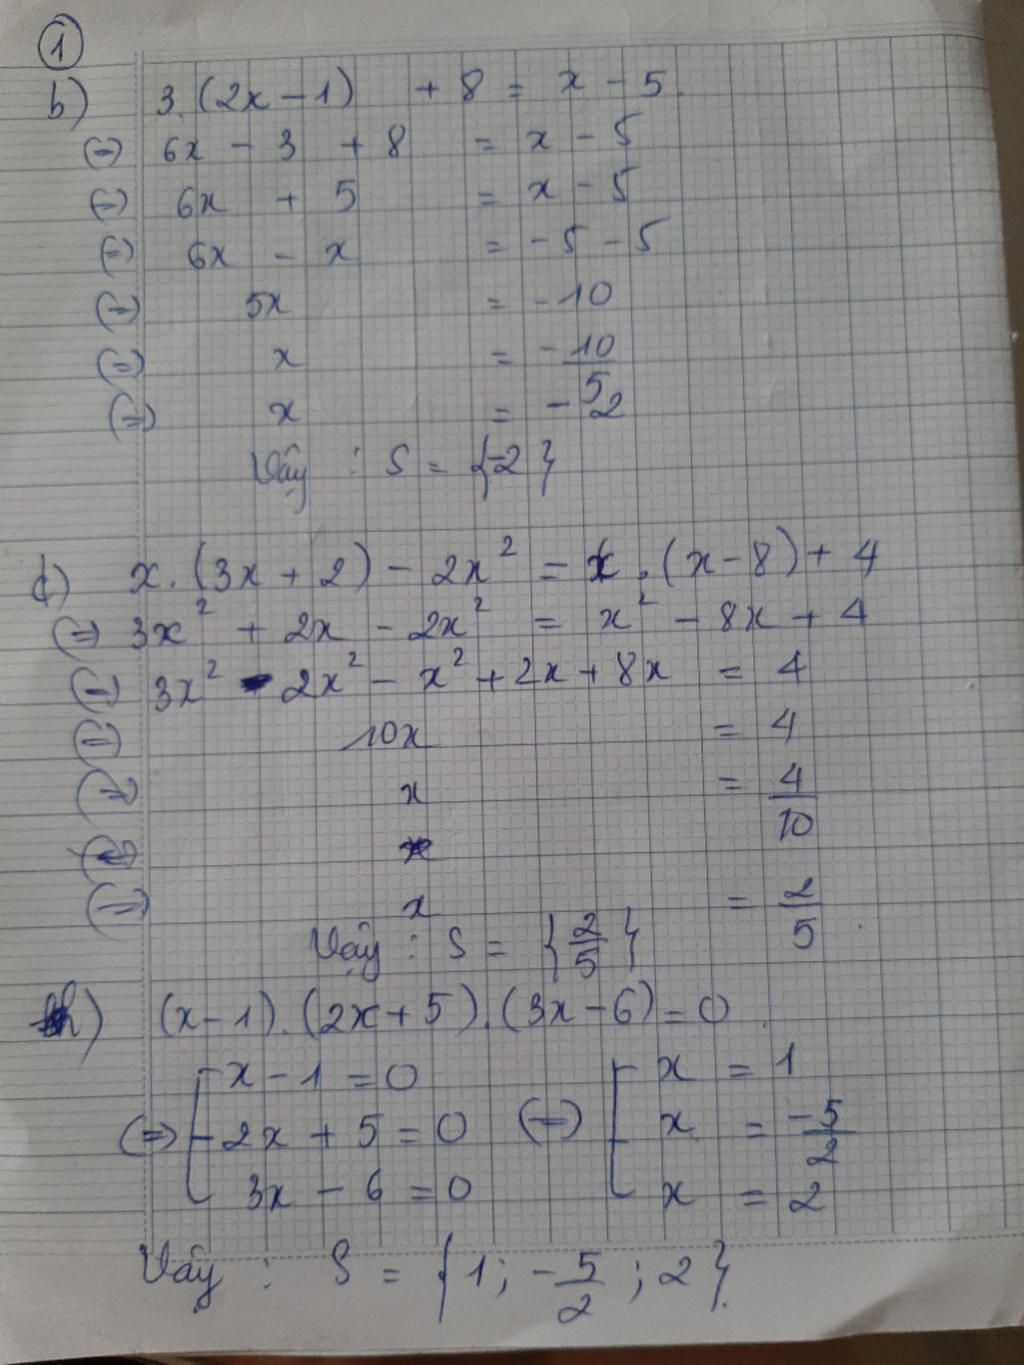 ①
b) 3.(2x-1) + 8 = x - 5
(=) 6x - 3 + 8 = x - 5
(=) 6x + 5 = x - 5
(=) 6x - x = -5 - 5
(=) 5x = -10
(=) x = -10/5
(=) x = -2
Vậy : S = {-2}
d) x.(3x+2) - 2x² = x.(x-8) + 4
(=) 3x² + 2x - 2x² = x² - 8x + 4
(=) 3x² - 2x² - x² + 2x + 8x = 4
(=) 10x = 4
(=) x = 4/10
(=) x = 2/5
Vậy : S = {2/5}
h) (x-1).(2x+5).(3x-6) = 0.
x - 1 = 0 x = 1
(=) 2x + 5 = 0 (=) x = -5/2
3x - 6 = 0 x = 2
Vậy : S = {1; -5/2; 2}.